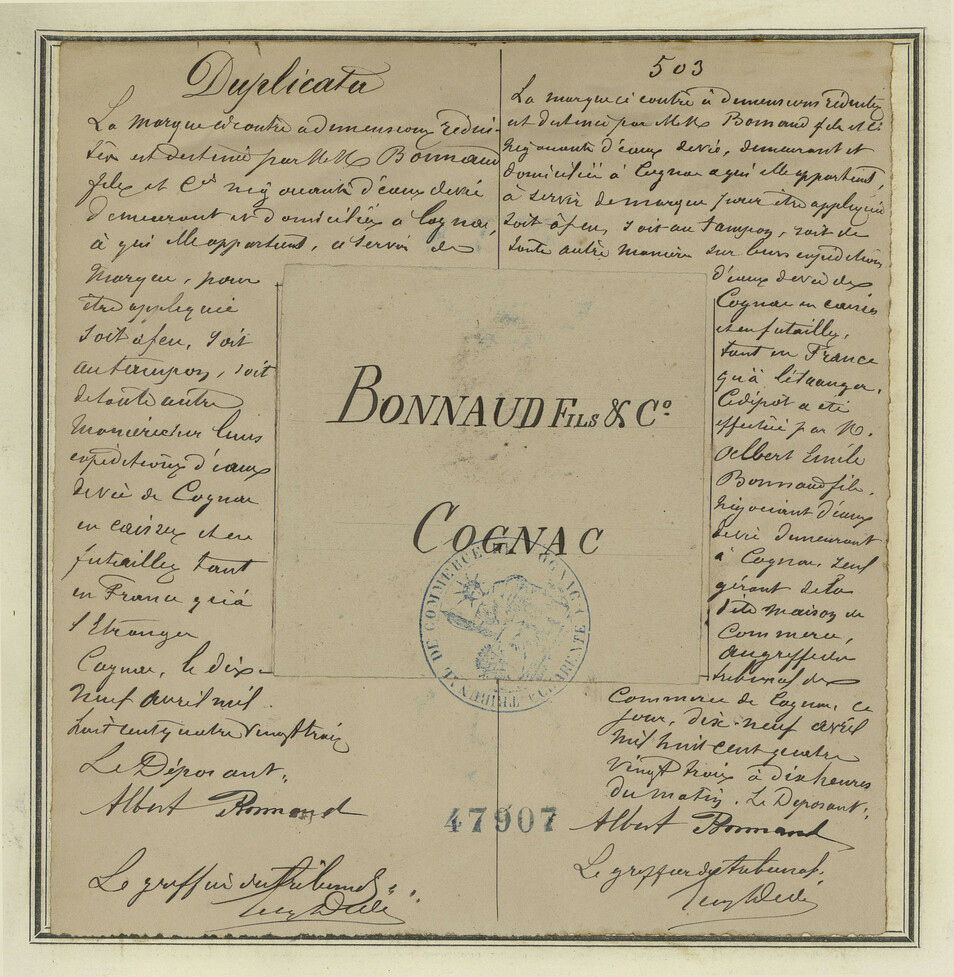 Duplicata
La marque ci contre à dimensions rédui-
tes est destinée par M.M. Bonnaud
fils et Cie négociants d'eaux de vie
demeurant et domiciliés à Cognac,
à qui elle appartient, à servir de
marque, pour
être appliquée
soit à feu, soit
au tampon, soit
de toute autre
manière sur leurs
expéditions d'eaux
de vie de Cognac
en caisses et en
futailles tant
en France qu'à
l'Etranger
Cognac, le dix-
neuf avril mil
huit cent quatre vingt trois
Le Déposant,
Albert Bonnaud
Le greffier du tribunal
503
La marque ci contre à dimensions réduites
est destinée par M.M. Bonnaud fils et Cie
négociants d'eaux de vie, demeurant et
domiciliés à Cognac a qui elle appartient,
à servir de marque pour être appliquée
soit à feu, soit au tampon, soit de
toute autre manière sur leurs expéditions
d'eaux de vie de
Cognac en caisses
et en futailles,
tant en France
qu'à l'étranger.
Ce dépôt a été
effectué par M.
Albert Emile
Bonnaud fils,
négociant d'eaux
de vie demeurant
à Cognac, seul
gérant de la
dite maison de
Commerce,
au greffe du
tribunal de
Commerce de Cognac, ce
jour, dix-neuf avril
mil huit cent quatre
vingt trois à dix heures
du matin. Le Déposant,
Albert Bonnaud
Le greffier du tribunal.
BONNAUD FILS & Co.
COGNAC
TRIBUNAL DE COMMERCE DE COGNAC CHARENTE
47907